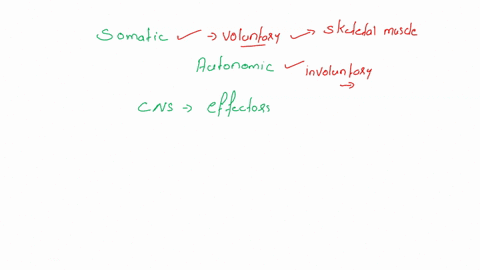 Somatic ✓ → voluntary ✓→ skeletal muscle
Autonomic ✓ involuntary →
CNS → effectors